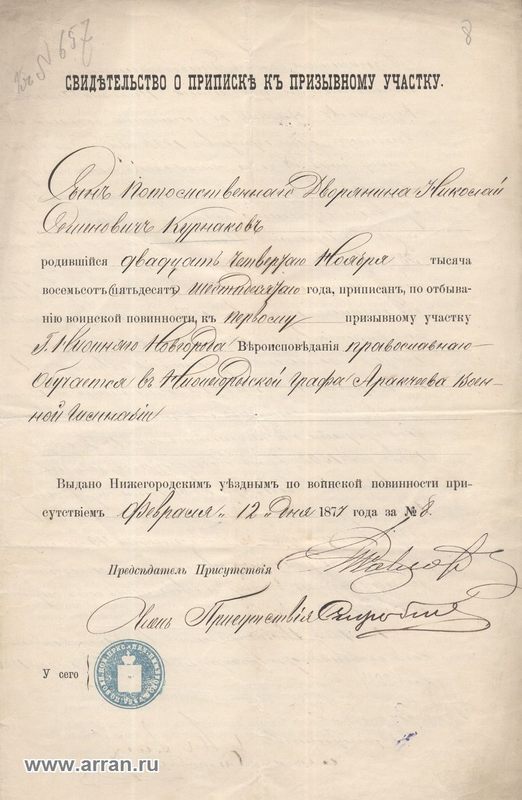 № 657
8
СВИДѢТЕЛЬСТВО О ПРИПИСКѢ КЪ ПРИЗЫВНОМУ УЧАСТКУ.
Сынъ Потомственнаго Дворянина Николай
Семиновичъ Курнаковъ
родившійся двадцать четвертаго Ноября тысяча
восемьсотъ (пятьдесятъ) шестьдесятаго года, приписанъ, по отбыва-
нію воинской повинности, къ первому призывному участку
Г. Нижняго Новгорода Вѣроисповѣданія православнаго
Обучается въ Нижегородской графа Аракчеева Воен-
ной Гимназіи
Выдано Нижегородскимъ уѣзднымъ по воинской повинности при-
сутствіемъ Февраля „12„ дня 1877 года за № 8.
Предсѣдатель Присутствія
Членъ Присутствія
У сего
www.arran.ru